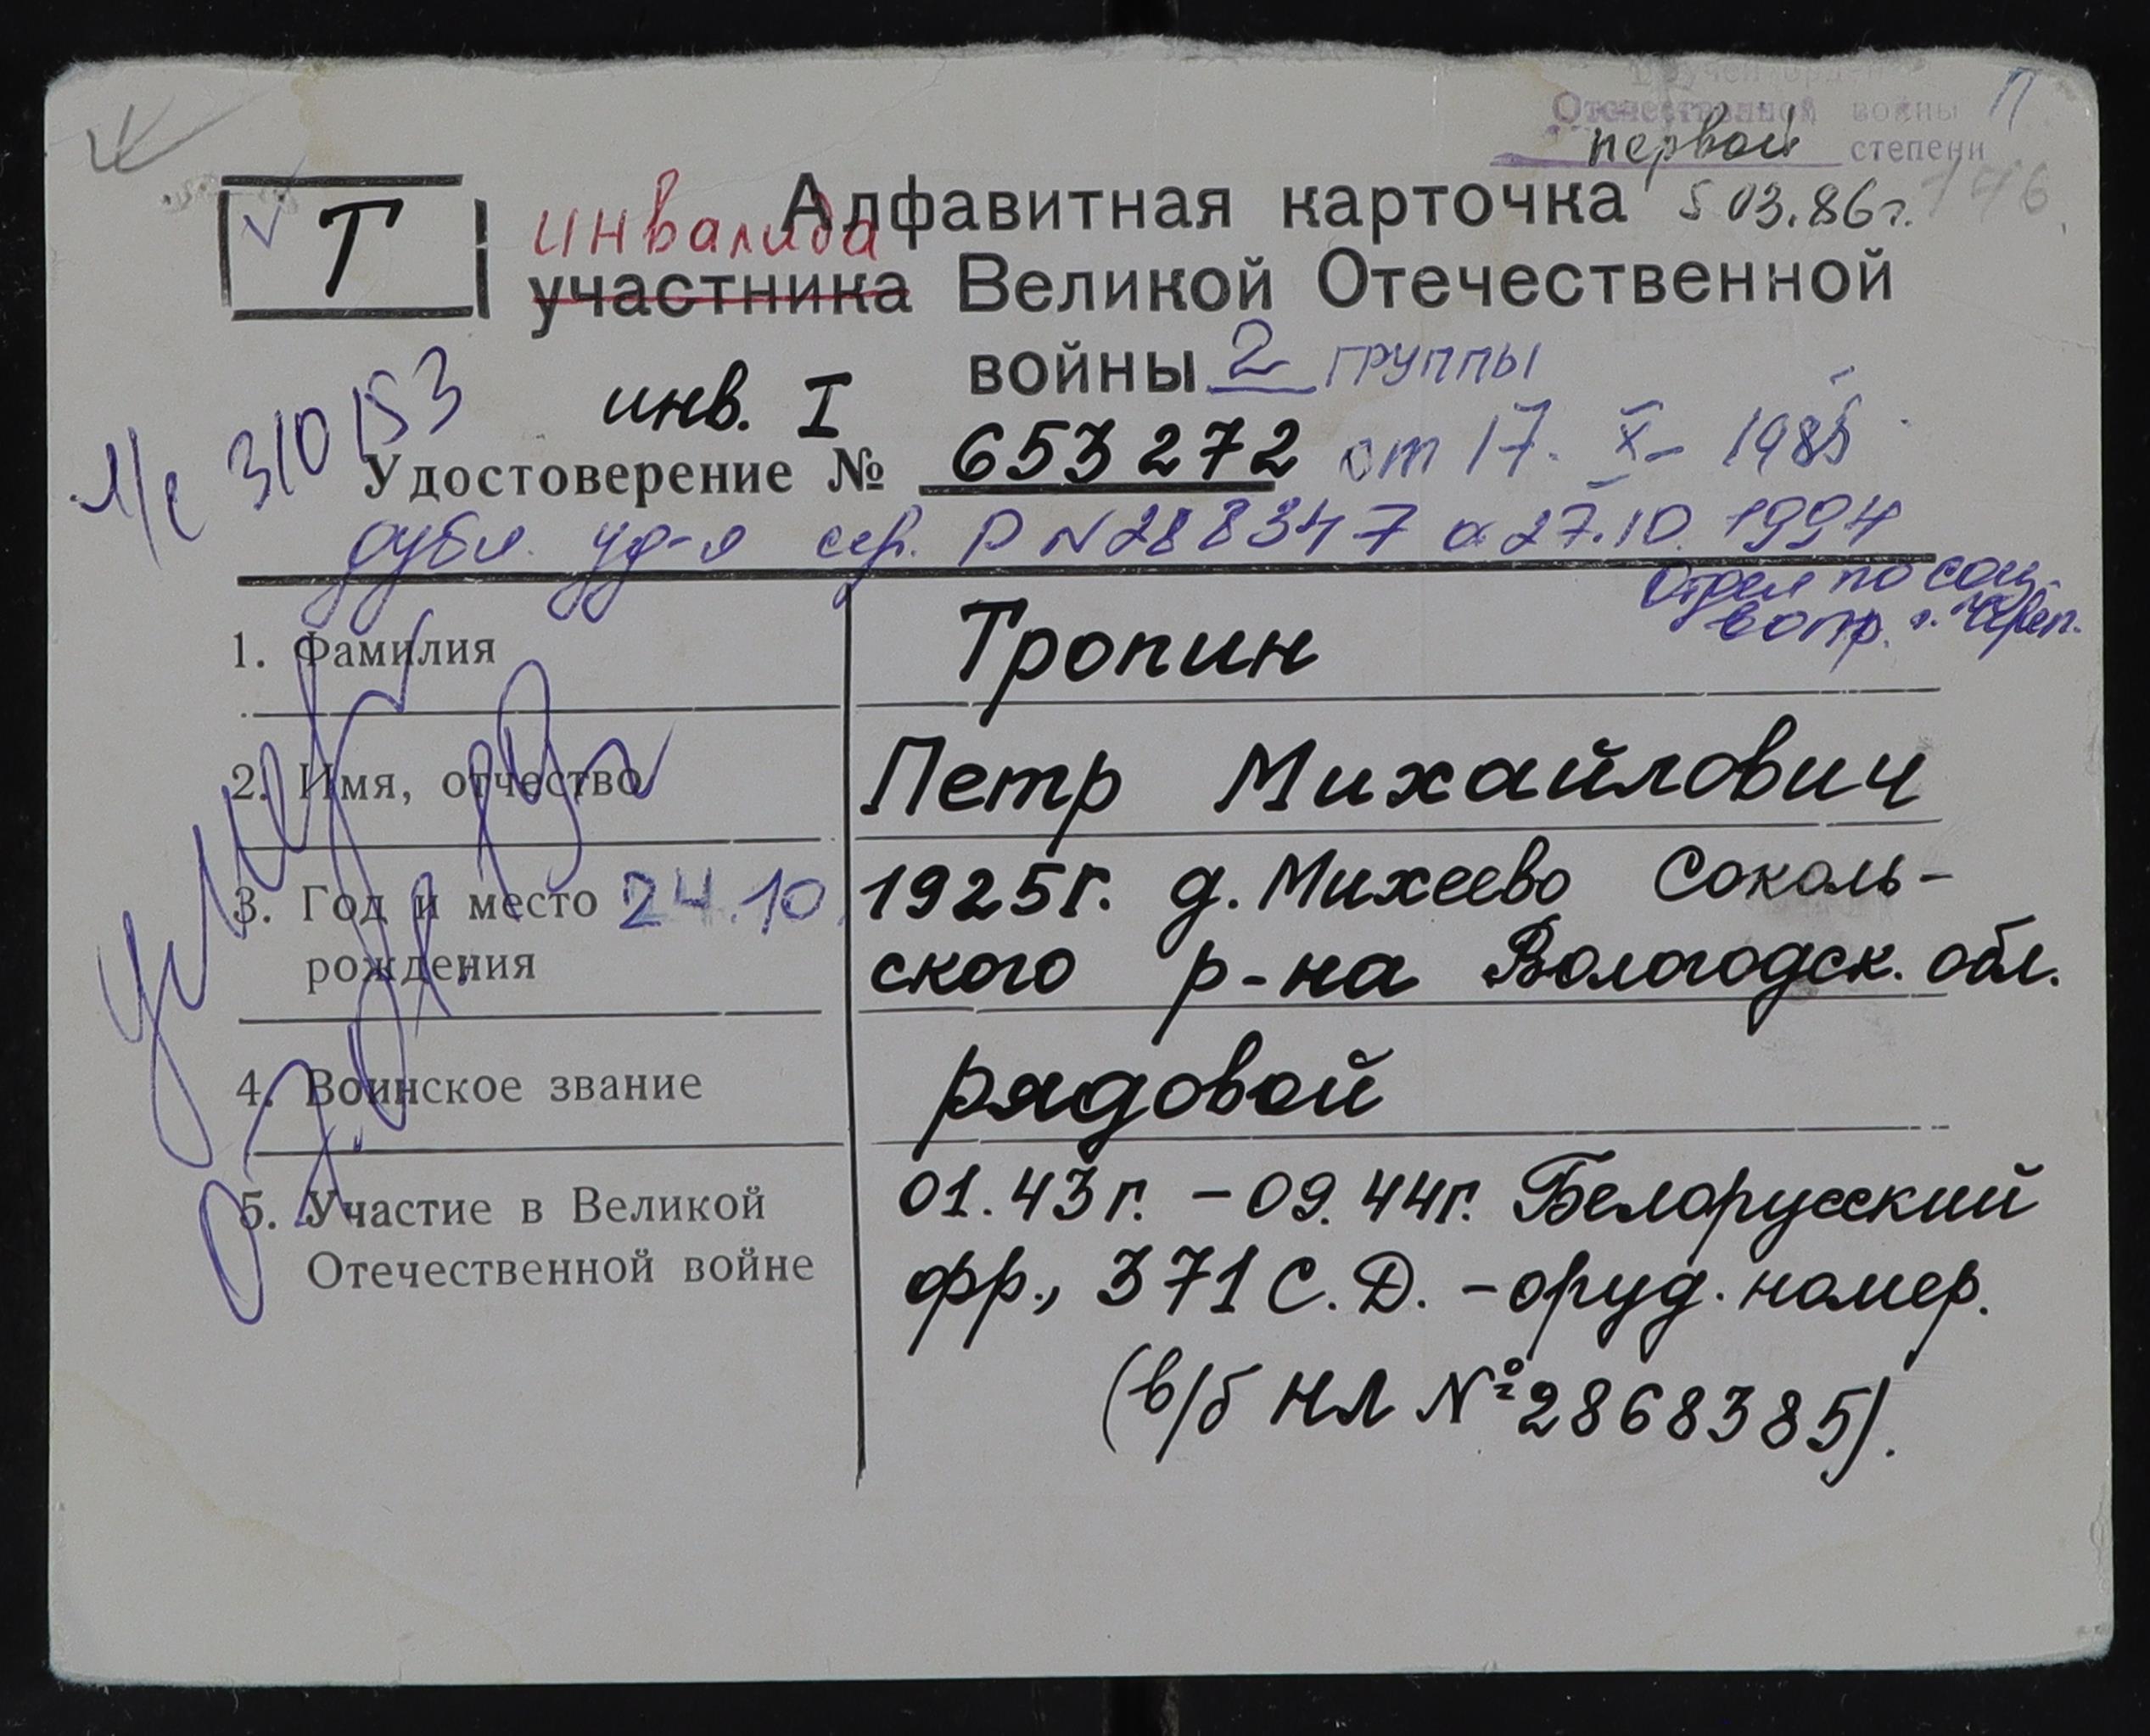 Вручен орден
Отечественной войны
первой степени
П
Т
Алфавитная карточка
5 03.86г.
146
инвалида
участника Великой Отечественной
войны 2 группы
инв. I
л/с 310153
Удостоверение № 653272 от 17. X - 1985
дубл. уд-я сер. Р N 288347 от 27.10.1994
Отдел по соц.
вопр. г. Череп.
1. Фамилия
Тропин
2. Имя, отчество
Петр Михайлович
3. Год и место 24.10.
рождения
1925г. д. Михеево Соколь-
ского р-на Вологодск. обл.
4. Воинское звание
рядовой
5. Участие в Великой
Отечественной войне
01.43г. - 09.44г. Белорусский
фр., 371 С.Д. - оруд. номер.
(в/б НЛ № 2868385).
умер